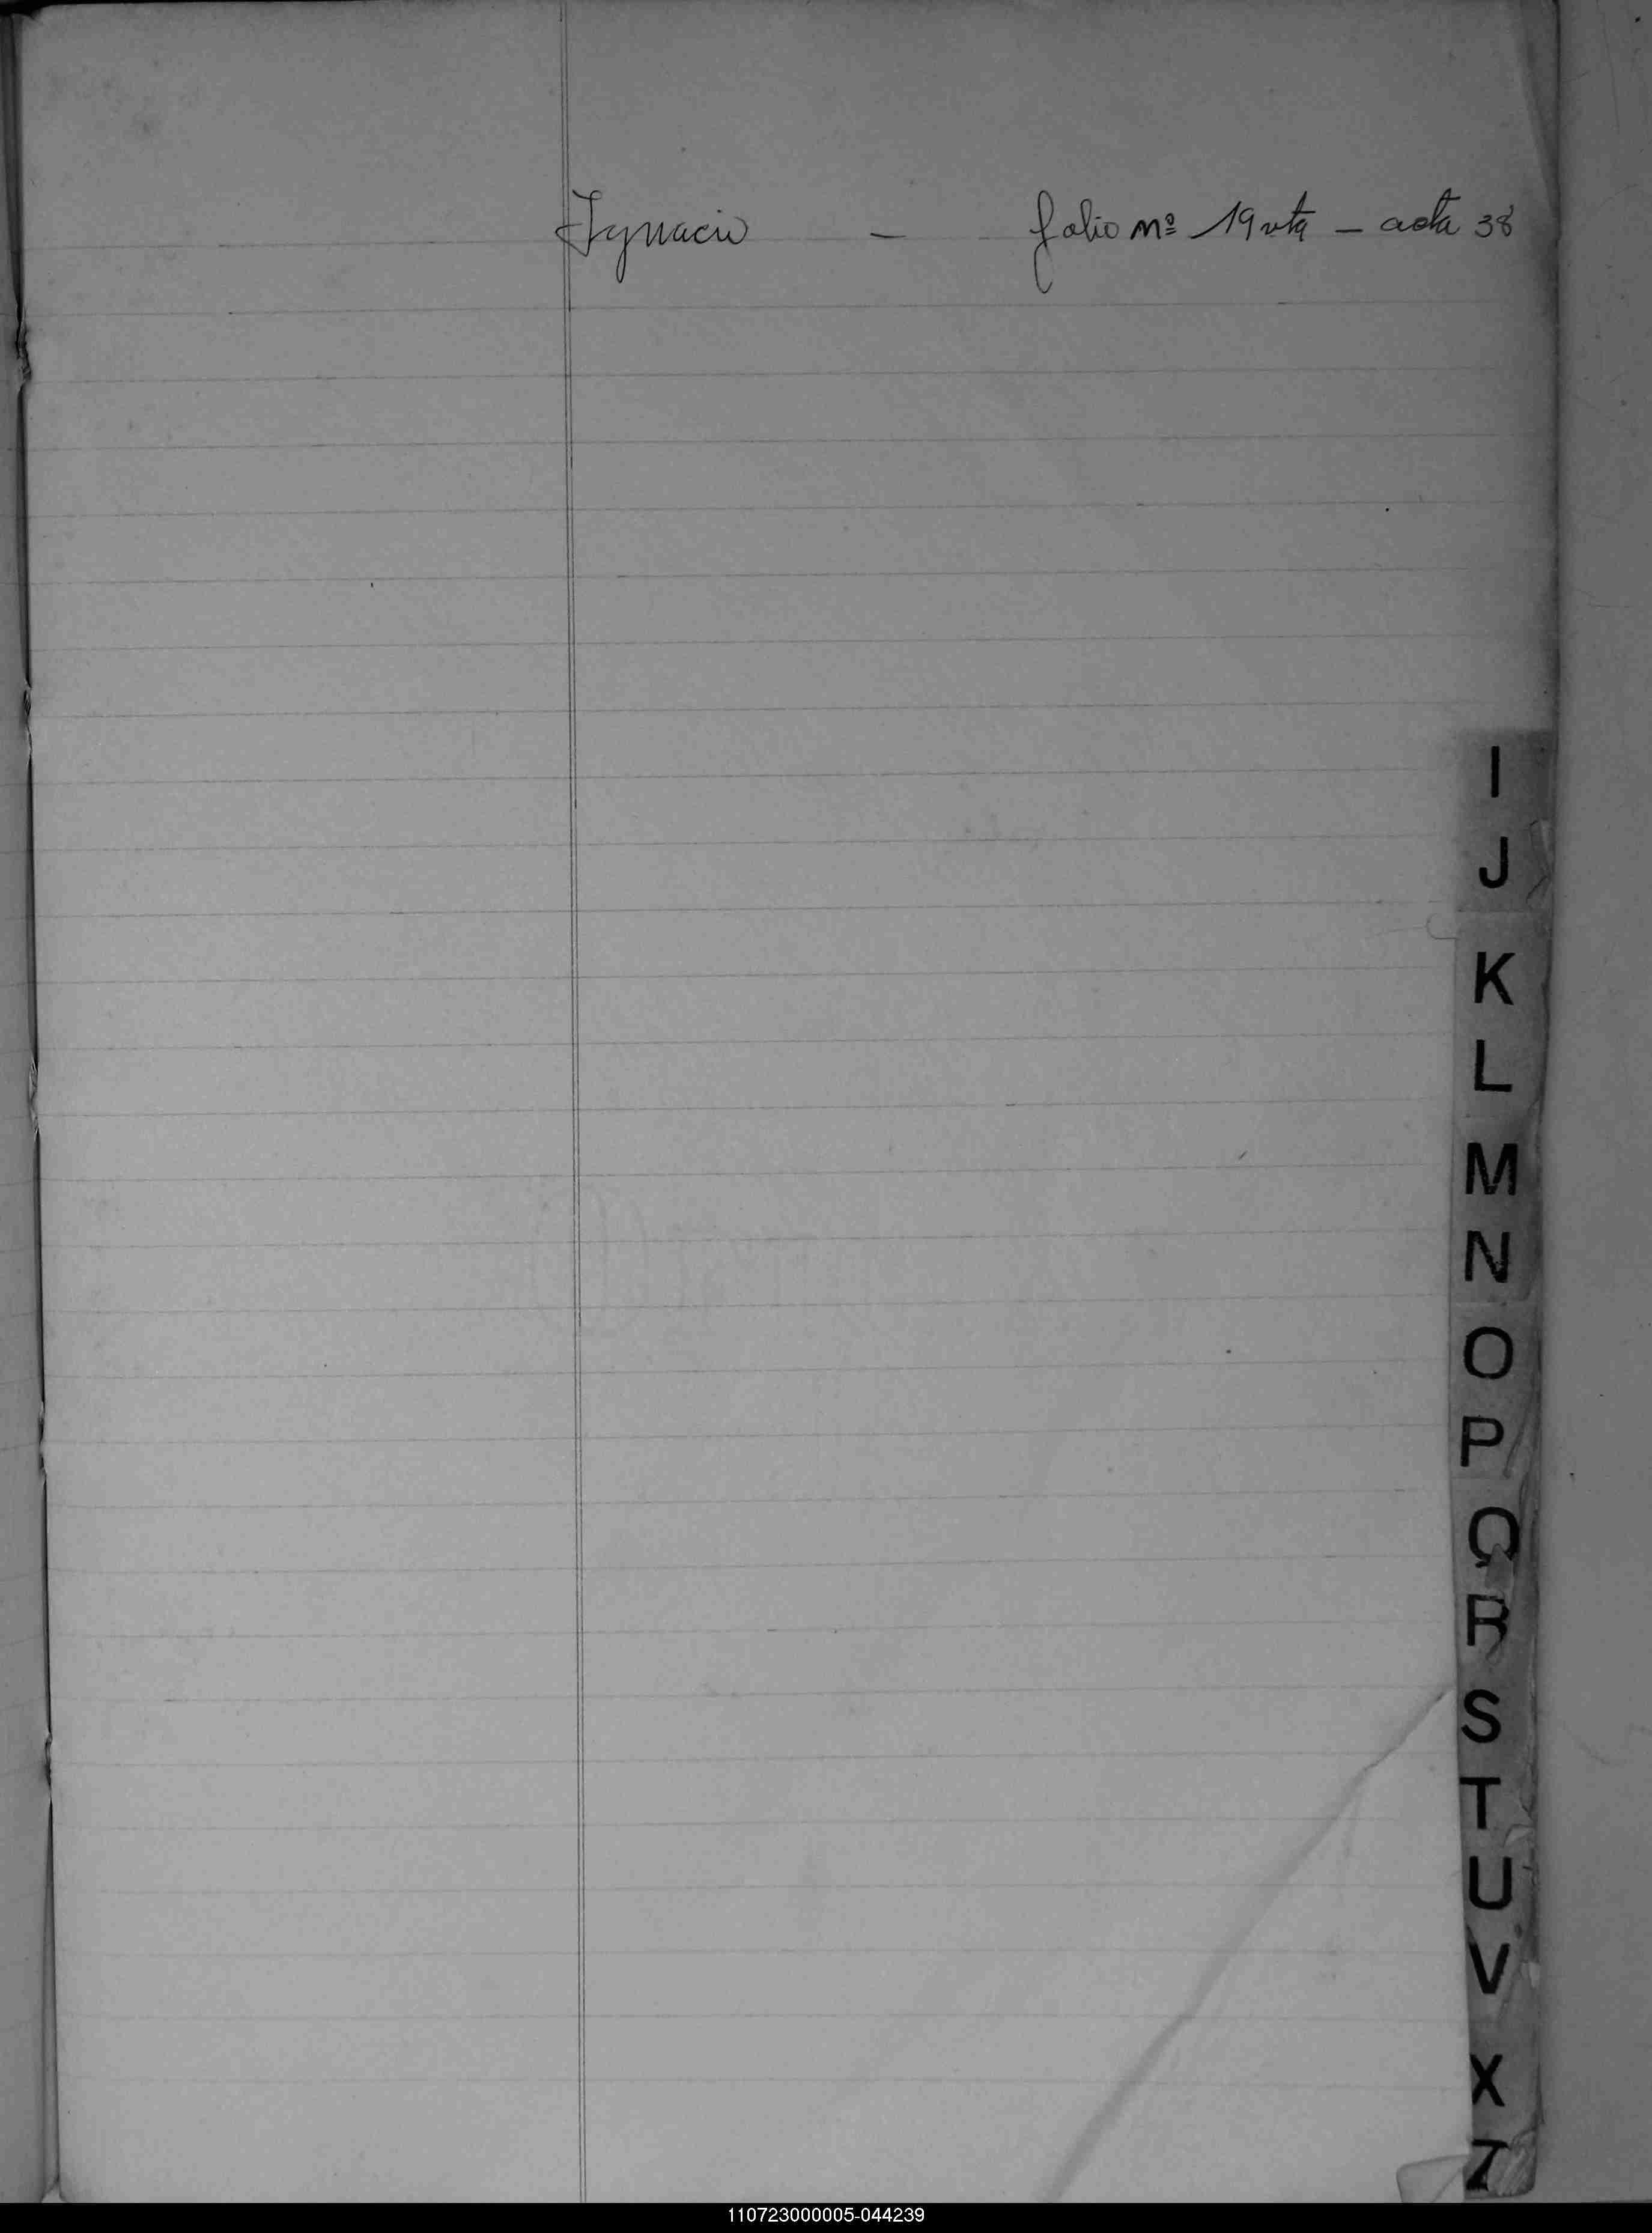 Ygnacio - folio Nº 19 vta - acta 38
I
J
K
L
M
N
O
P
Q
R
S
T
U
V
X
Z
110723000005-044239